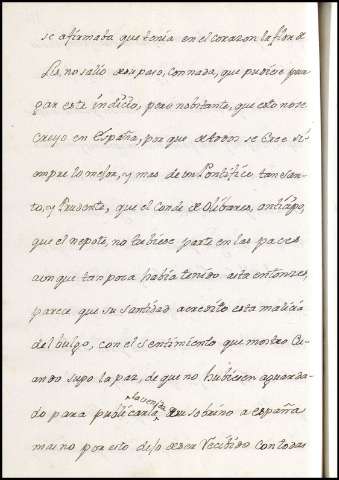 se afirmaba que tenia en el corazon la flor de
Lis, no salio de su peso, con nada, que pudiese pur
gar este indicio, pero nobstante, que esto no se
Creyo en España, por que de todos se Cree si-
empre lo mejor, y mas de un Pontifice tan San-
to, y Prudente, que el Conde de Olibares,
que el nepote, no tubiese parte en las paces
aunque tan poca habia tenido asta entonzes,
parece que su santidad acredito esta malicia
del bulgo, con el sentimiento que mostro Cu-
ando supo la paz, de que no hubiesen aguarda-
do para publicarla, a la venida de su sobrino a españa
mas no por esto dejo de ser recibido con todas